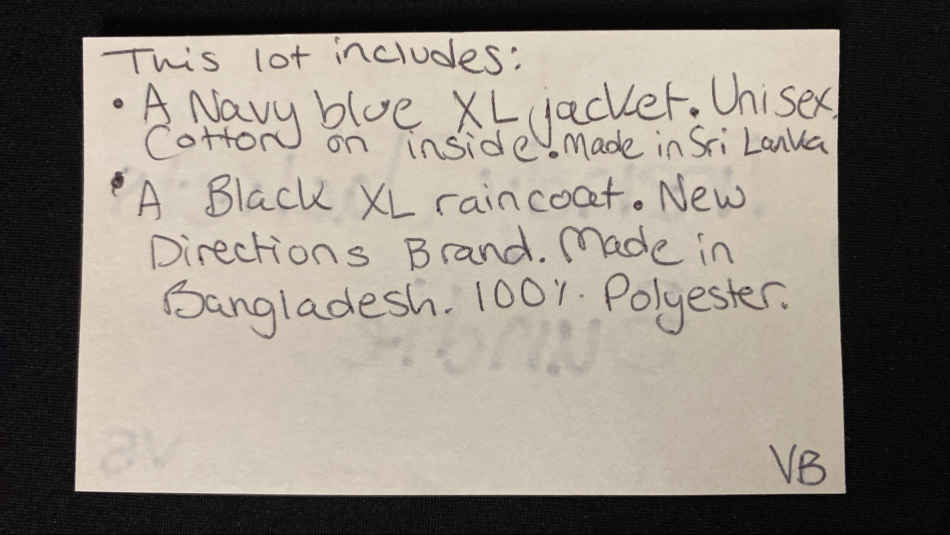 This lot includes:
• A Navy blue XL jacket. Unisex.
Cotton on inside. Made in Sri Lanka
• A Black XL raincoat. New
Directions Brand. Made in
Bangladesh. 100% Polyester.
VB